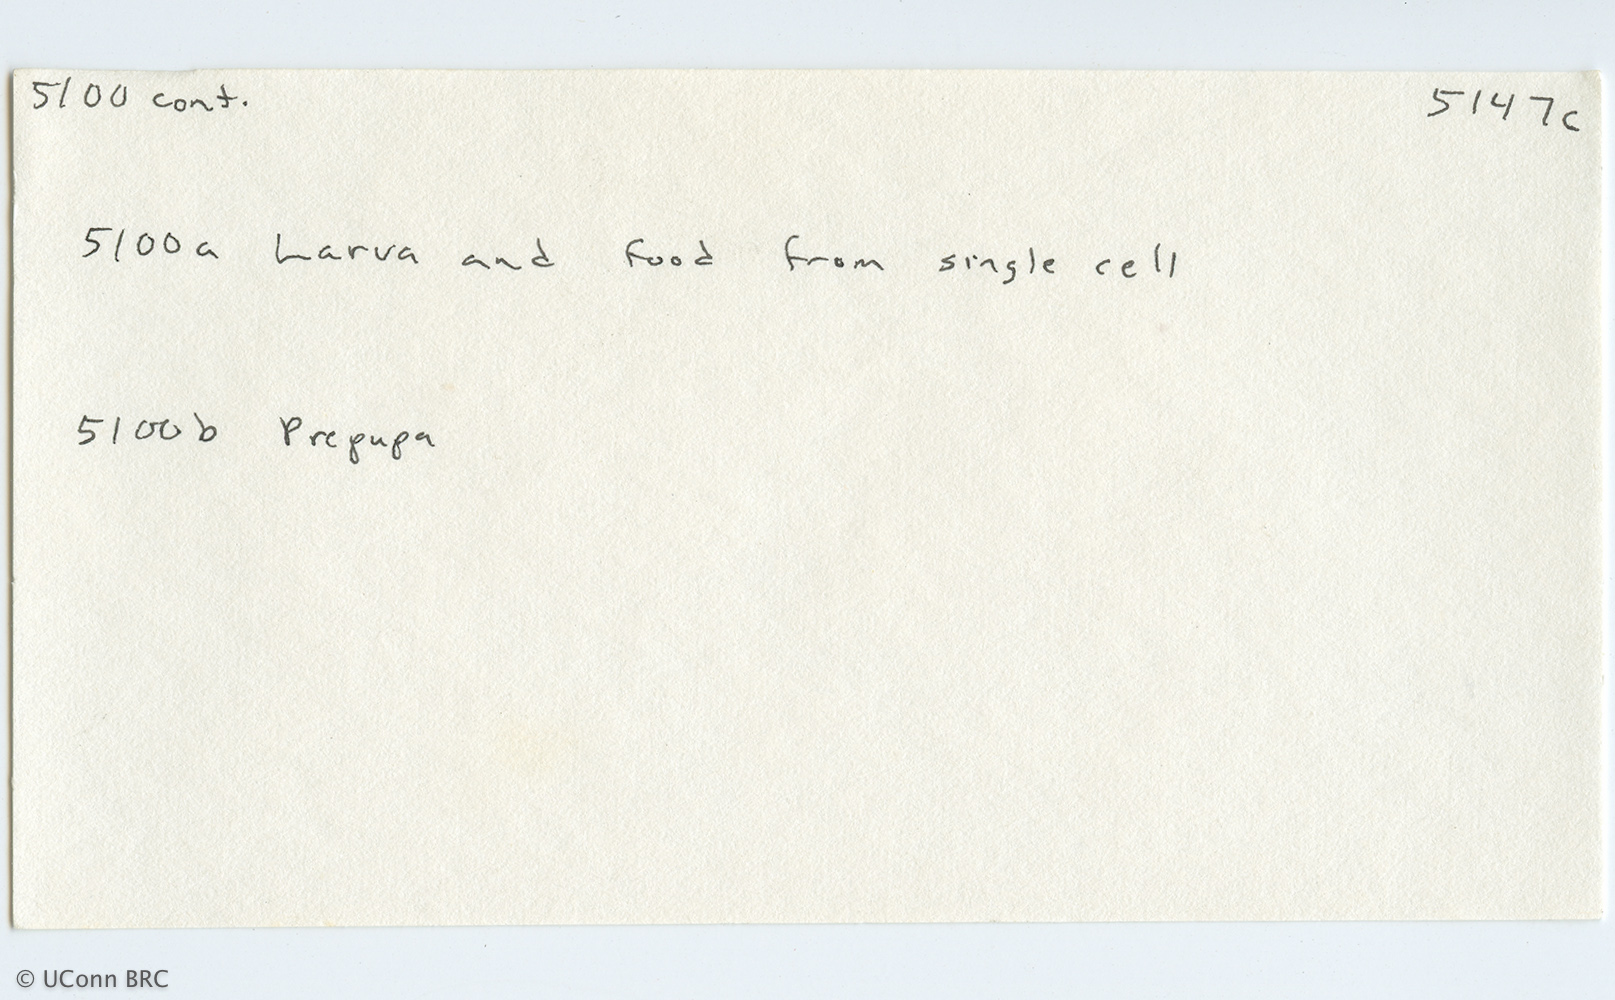 5100 cont. 5147c
5100a Larva and food from single cell
5100b Prepupa
© UConn BRC